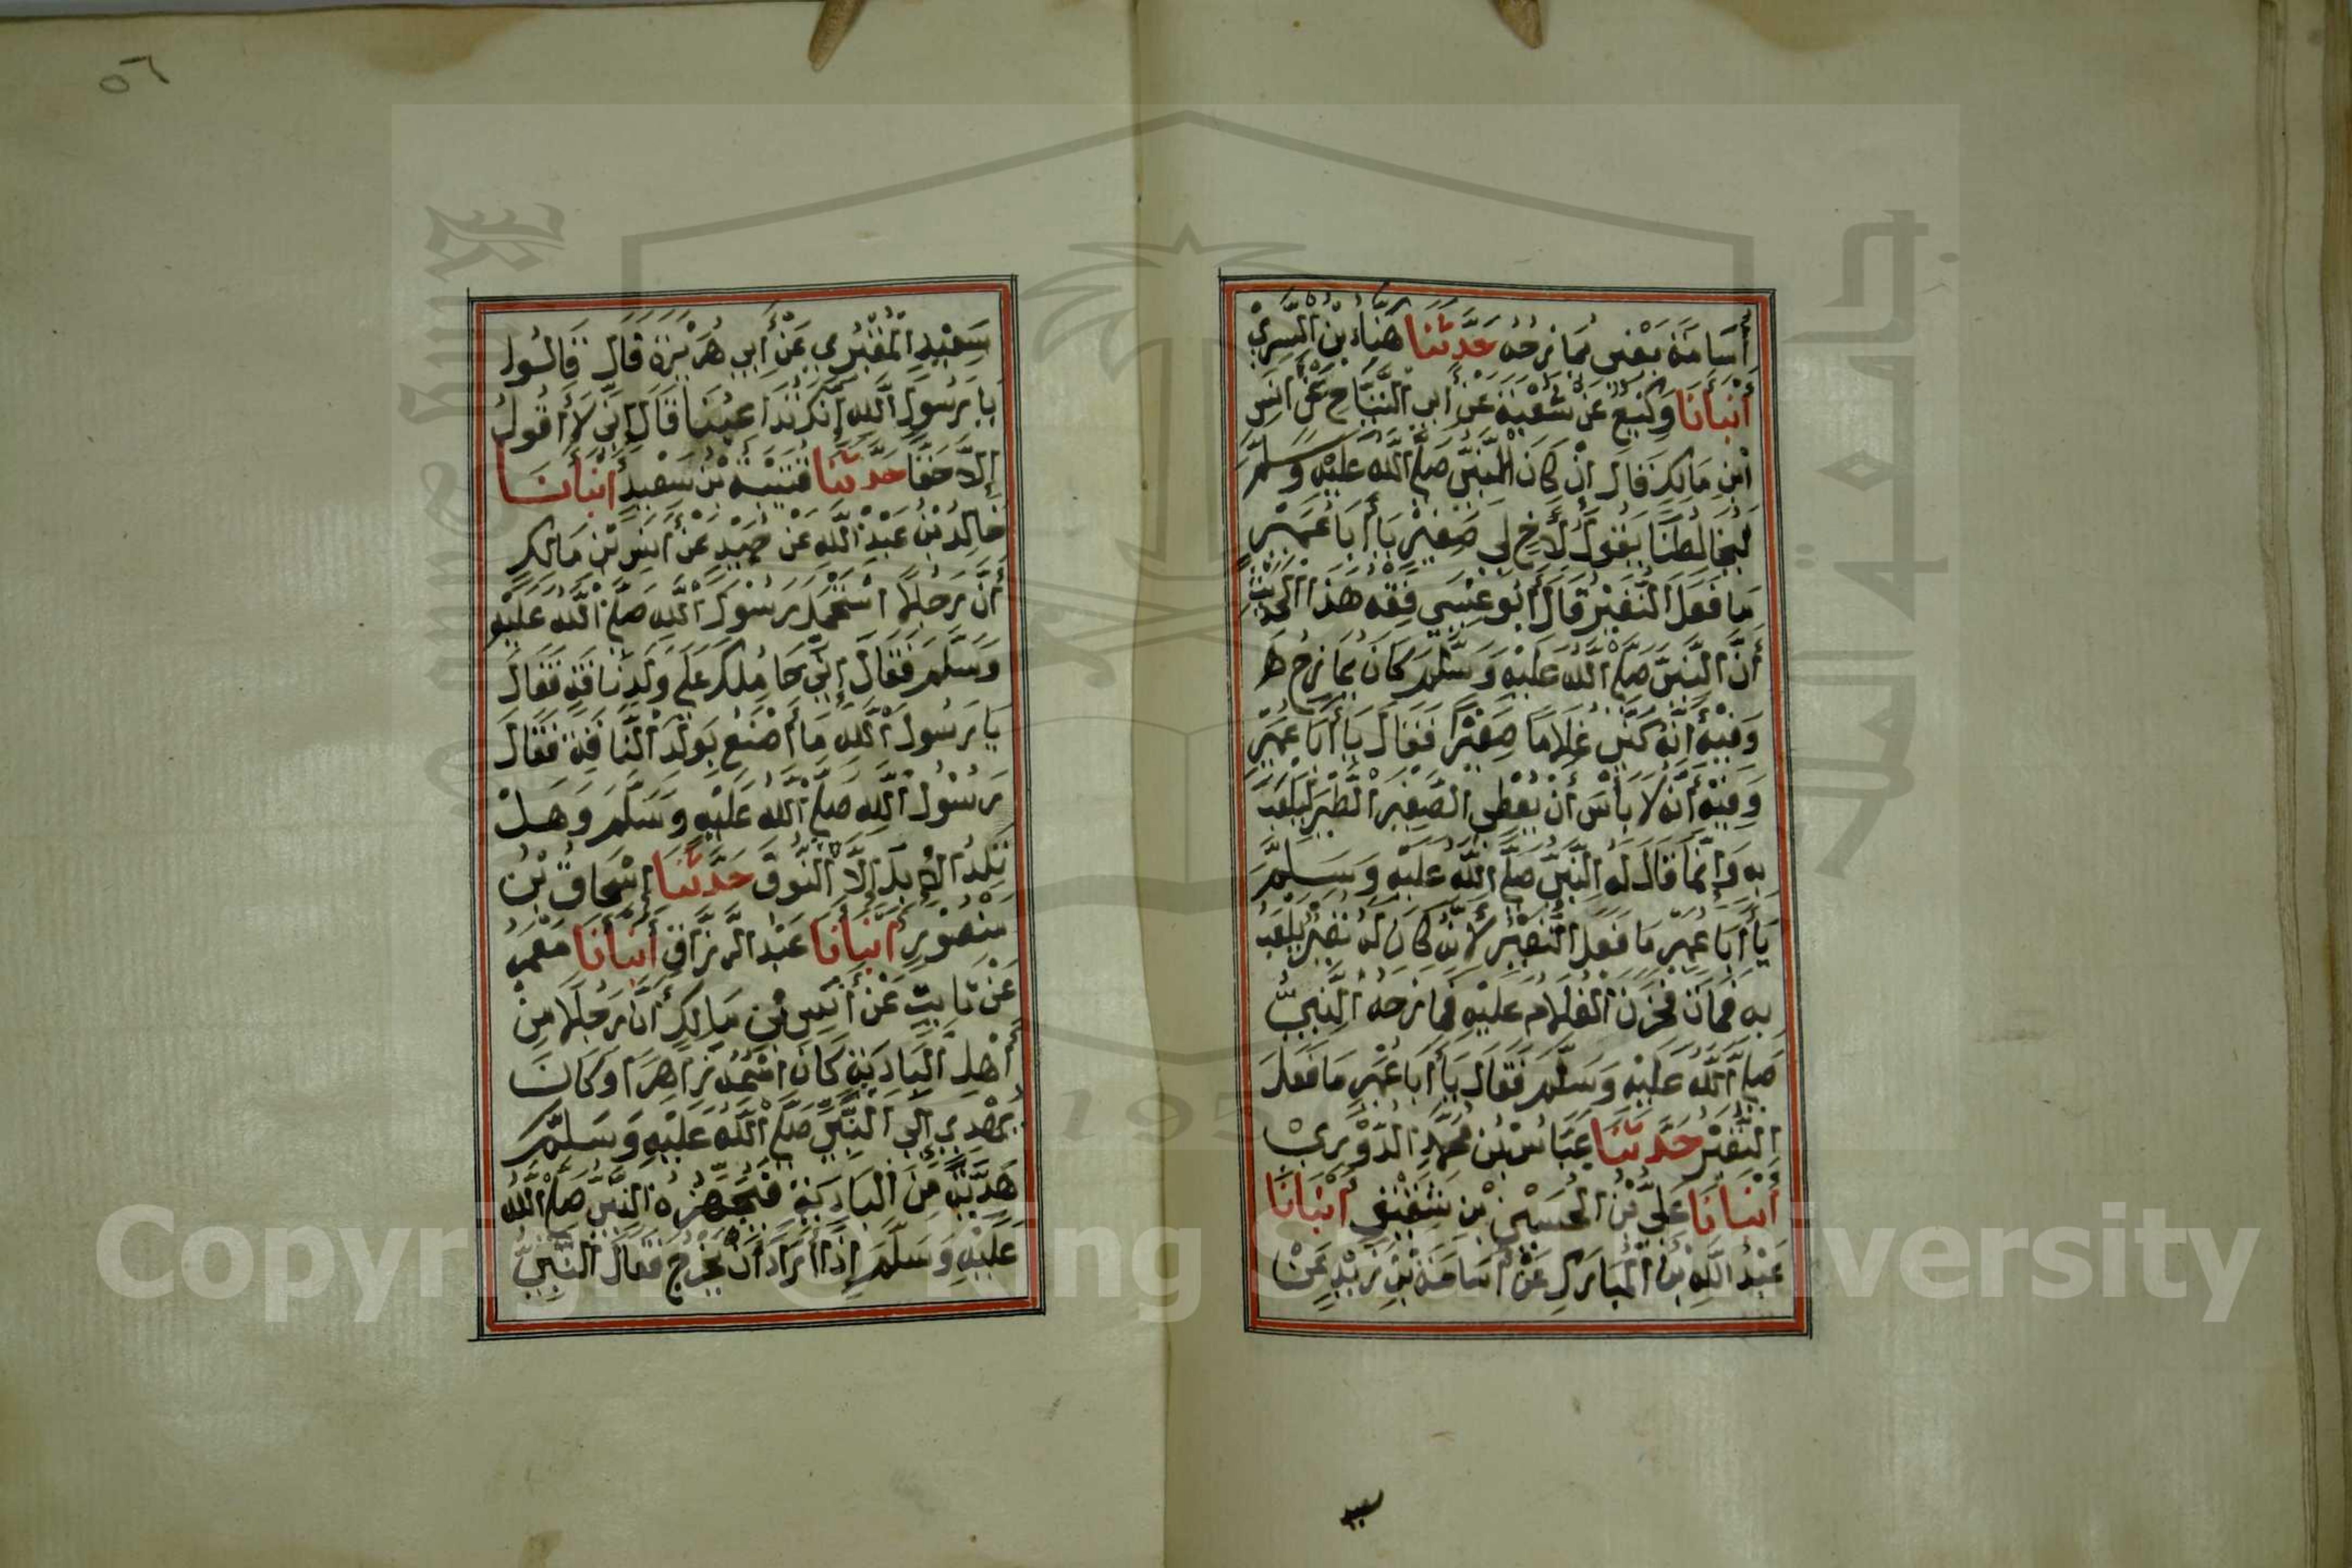 أُسَامَة يَعْنِى يُمَازِحُهُ حَدَّثَنَا هَنَّادُ بْنُ السَّرِيِّ
أَنْبَأَنَا وَكِيْعٌ عَنْ شُعْبَةَ عَنْ أَبِي التَّيَّاحِ عَنْ أَنَسِ
ابْنِ مَالِكٍ قَالَ انْ كَانَ النَّبِيُّ صَلَّى اللَّهُ عَلَيْهِ وَسَلَّمَ
لَيُخَالِطُنَا يَقُولُ لِأَخٍ لِي صَغِيْرٍ يَا أَبَا عُمَيْرٍ
مَا فَعَلَ النُّغَيْرُ قَالَ أَبُو عِيْسَي فِقْهُ هَذَا الْحَدِيْثِ
أَنَّ النَّبِيَّ صَلَّى اللَّهُ عَلَيْهِ وَسَلَّمَ كَانَ يُمَازِحُ هـ
وَفِيْهِ أَنَّهُ كَنَّى غُلَامًا صَغِيْرًا فَقَالَ يَا أَبَا عُمَيْرٍ
وَفِيْهِ أَنَّهُ لَا بَأْسَ أَنْ يُعْطِى الصَّغِيْرَ الطَّيْرَ لِيَلْعَبَ
بِهِ وَإِنَّمَا قَالَ لَهُ النَّبِيُّ صَلَّى اللَّهُ عَلَيْهِ وَسَلَّمَ
يَا أَبَا عُمَيْرٍ مَا فَعَلَ النُّغَيْرُ لِأَنَّهُ كَانَ لَهُ نُغَيْرٌ يَلْعَبُ
بِهِ فَمَاتَ فَحَزِنَ الْغُلَامُ عَلَيْهِ فَمَازَحَهُ النَّبِيُّ
صَلَّى اللَّهُ عَلَيْهِ وَسَلَّمَ فَقَالَ يَا أَبَا عُمَيْرٍ مَا فَعَلَ
النُّغَيْرُ حَدَّثَنَا عَبَّاسُ بْنُ مُحَمَّدٍ الدُّوْرِيُّ
أَنْبَأَنَا عَلِيُّ بْنُ الْحُسَيْنِ بْنِ شَقِيْقٍ أَنْبَأَنَا
عَبْدُ اللَّهِ بْنُ الْمُبَارَكِ عَنْ أُسَامَةَ بْنِ زَيْدٍ عَنْ
سعيد
٥٦
سَعِيْدٍ الْمَقْبُرِي عَنْ أَبِي هُرَيْرَةَ قَالَ قَالُوا
يَا رَسُولَ اللَّهِ إِنَّكَ تُدَاعِبُنَا قَالَ إِنِّي لَا أَقُولُ
إِلَّا حَقًّا حَدَّثَنَا قُتَيْبَةُ بْنُ سَعِيْدٍ أَنْبَأَنَا
خَالِدُ بْنُ عَبْدِ اللَّهِ عَنْ حُمَيْدٍ عَنْ أَنَسِ بْنِ مَالِكٍ
أَنَّ رَجُلًا اسْتَحْمَلَ رَسُولَ اللَّهِ صَلَّى اللَّهُ عَلَيْهِ
وَسَلَّمَ فَقَالَ إِنِّي حَامِلُكَ عَلَى وَلَدِ نَاقَةٍ فَقَالَ
يَا رَسُولَ اللَّهِ مَا أَصْنَعُ بِوَلَدِ النَّاقَةِ فَقَالَ
رَسُوْلُ اللَّهِ صَلَّى اللَّهُ عَلَيْهِ وَسَلَّمَ وَهَلْ
تَلِدُ الْإِبِلَ إِلَّا النُّوقُ حَدَّثَنَا إِسْحَاقُ بْنُ
مَنْصُوْرٍ أَنْبَأَنَا عَبْدُ الرَّزَّاقِ أَنْبَأَنَا مَعْمَرٌ
عَنْ ثَابِتٍ عَنْ أَنَسِ بْنِ مَالِكٍ أَنَّ رَجُلًا مِنْ
أَهْلِ الْبَادِيَةِ كَانَ اسْمُهُ زَاهِرًا وَكَانَ
يُهْدِي إِلَى النَّبِيِّ صَلَّى اللَّهُ عَلَيْهِ وَسَلَّمَ
هَدِيَّةً مِنَ الْبَادِيَةِ فَيُجَهِّزُهُ النَّبِيُّ صَلَّى اللَّهُ
عَلَيْهِ وَسَلَّمَ إِذَا أَرَادَ أَنْ يَخْرُجَ فَقَالَ النَّبِيُّ
جامعة الملك سعود
1957
Copyright © King Saud University